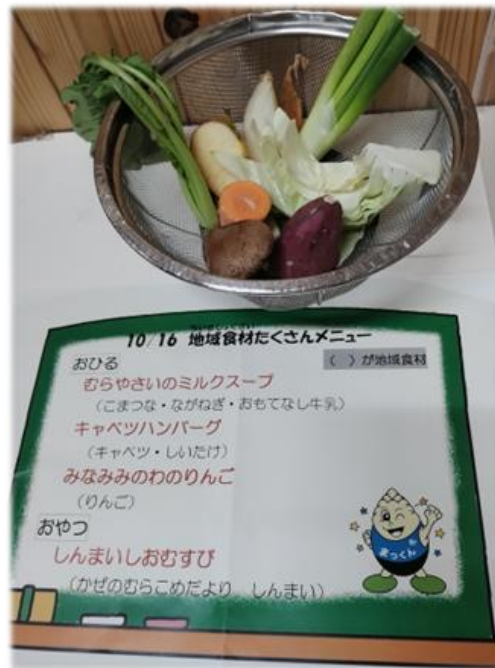 10/16 地域食材たくさんメニュー
( )が地域食材
おひる
むらやさいのミルクスープ
(こまつな・ながねぎ・おもてなし牛乳)
キャベツハンバーグ
(キャベツ・しいたけ)
みなみみのわのりんご
(りんご)
おやつ
しんまいしおむすび
(かぜのむらこめだより しんまい)
まっくん